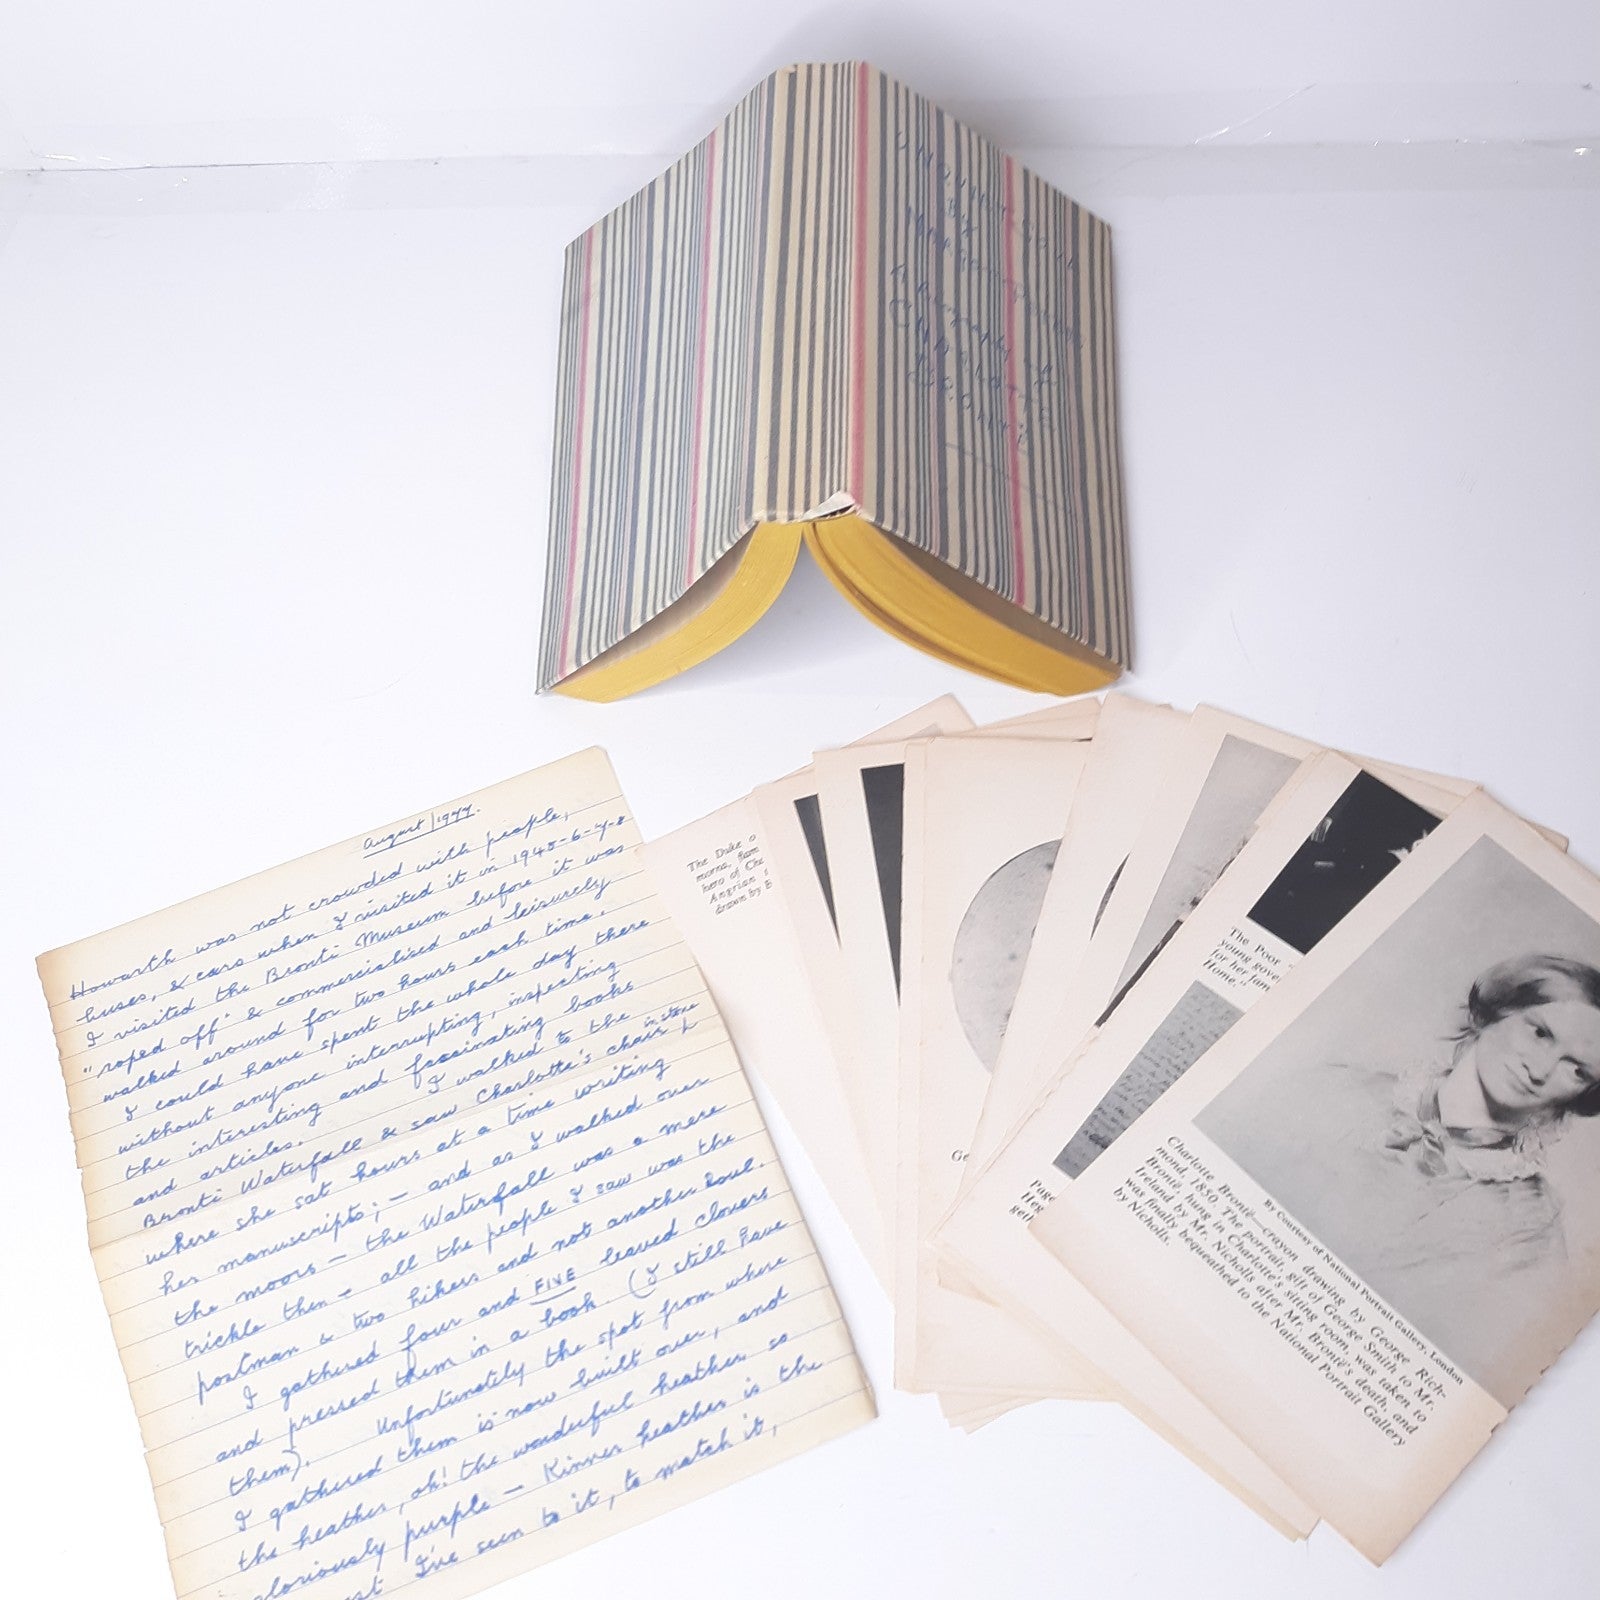 Unquiet Soul
By
Margot Peters
A Biography of
CHARLOTTE
Brontë
August/1977.
Howarth was not crowded with people,
buses, & cars when I visited it in 1945-6-7-8
I visited the Brontë Museum before it was
"roped off" & commercialised and leisurely
walked around for two hours each time.
I could have spent the whole day there
without anyone interrupting, inspecting
the interesting and fascinating books
and articles. I walked to the
Brontë Waterfall & saw Charlotte's chair in stone
where she sat hours at a time writing
her manuscripts; — and as I walked over
the moors — the Waterfall was a mere
trickle then — all the people I saw was the
postman & two hikers and not another soul.
I gathered four and FIVE leaved clovers
and pressed them in a book. (I still have
them). Unfortunately the spot from where
I gathered them is now built over, and
the heather, oh! the wonderful heather so
gloriously purple — Kinver heather is the
I've seen to it, to match it,
The Duke o
morna, flam
hero of Cha
Angrian
drawn by B
Ge
The Poor
young gove
for her fam
Home."
Page
Heg
gett
By Courtesy of National Portrait Gallery, London
Charlotte Brontë—crayon drawing by George Rich-
mond, 1850. The portrait, gift of George Smith to Mr.
Brontë, hung in Charlotte's sitting room, was taken to
Ireland by Mr. Nicholls after Mr. Brontë's death, and
was finally bequeathed to the National Portrait Gallery
by Nicholls.